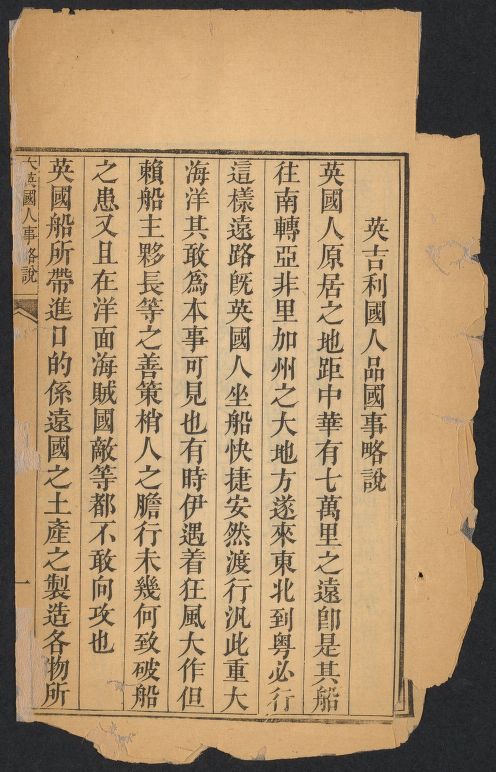 英吉利國人品國事略說
英國人原居之地距中華有七萬里之遠卽是其船
往南轉亞非里加州之大地方遂來東北到粵必行
這樣遠路旣英國人坐船快捷安然渡行汎此重大
海洋其敢爲本事可見也有時伊遇着狂風大作但
賴船主夥長等之善策梢人之膽行未幾何致破船
之患又且在洋面海賊國敵等都不敢向攻也
英國船所帶進口的係遠國之土產之製造各物所
大英國人事略說
一